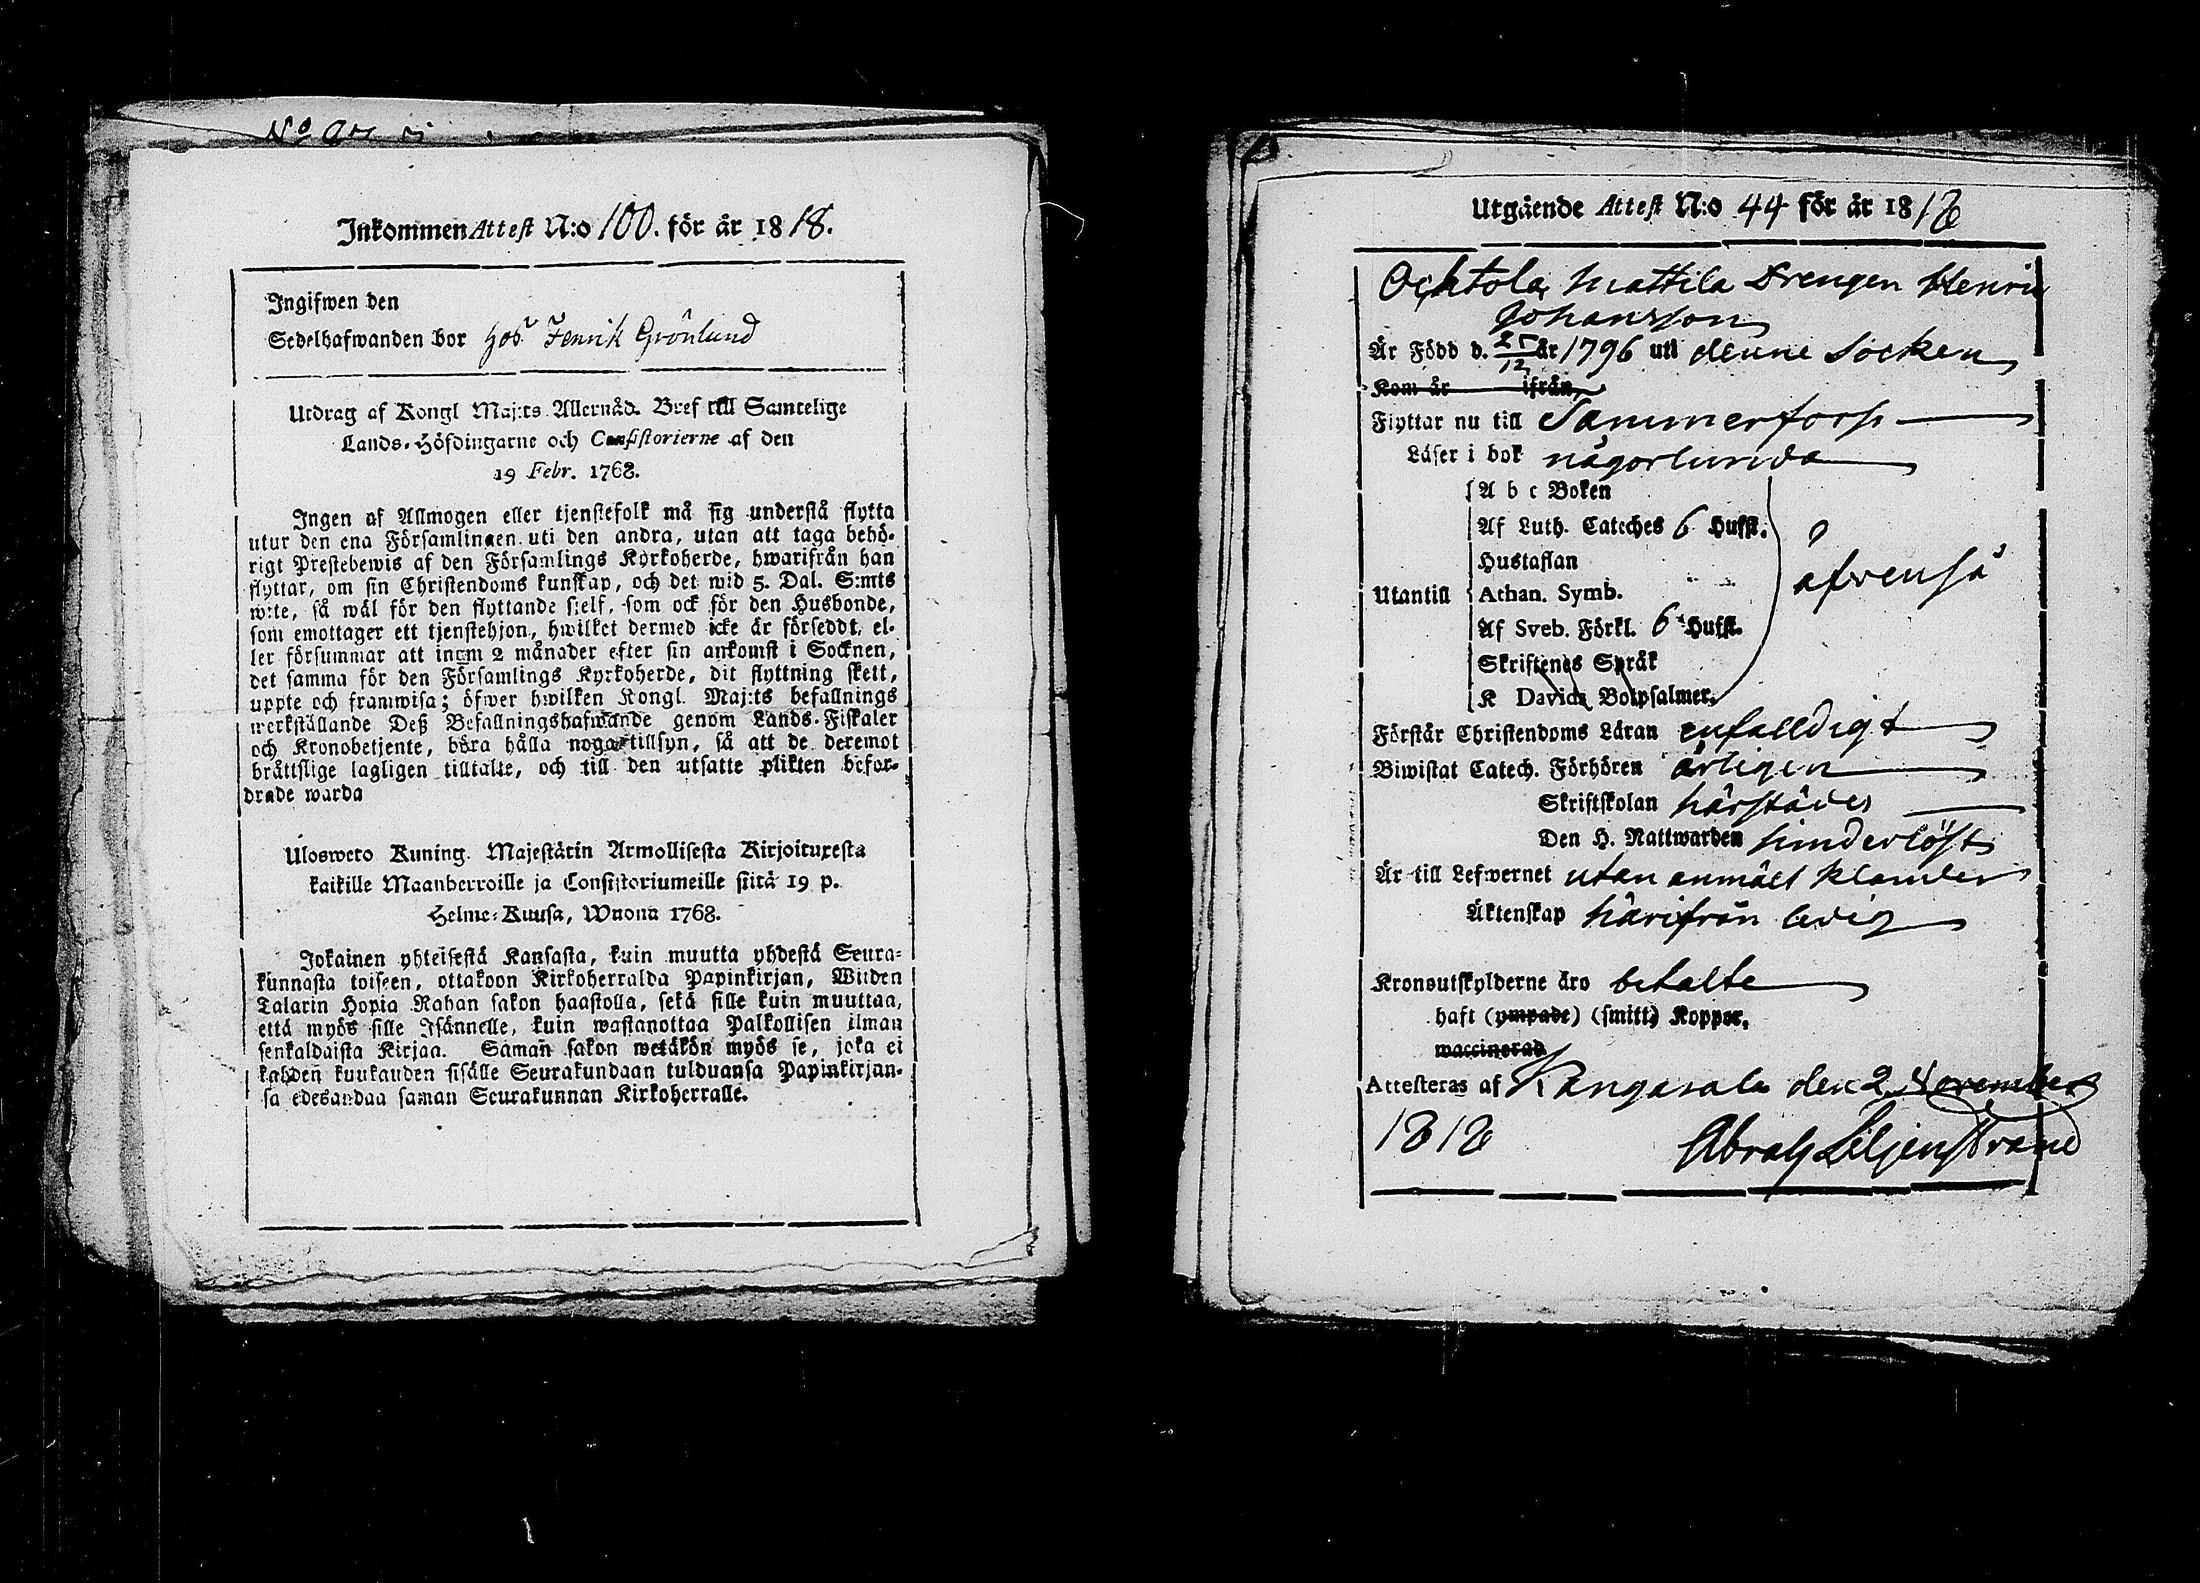 Inkommen Attest N:o 100. för år 1818.
Ingifwen den
Sedelhafwanden bor hos Henrik Grönlund
Utdrag af Kongl Maj:ts Allernåd. Bref till Samtelige
Lands-Höfdingarne och Consistorierne af den
19 Febr. 1768.
Ingen af Allmogen eller tjenstefolk må sig understå flytta
utur den ena Församlingen uti den andra, utan att taga behö-
rigt Prestebewis af den Församlings Kyrkoherde, hwarifrån han
flyttar, om sin Christendoms kunskap, och det wid 5. Dal. S:mts
wite, så wäl för den flyttande sjelf, som ock för den Husbonde,
som emottager ett tjenstehjon, hwilket dermed icke är förseddt, el-
ler försummar att inom 2 månader efter sin ankomst i Socknen,
det samma för den Församlings Kyrkoherde, dit flyttning skett,
uppte och framwisa; öfwer hwilken Kongl. Maj:ts befallnings
werkställande Deß Befallningshafwande genom Lands-Fiskaler
och Kronobetjente, böra hålla noga tillsyn, så att de deremot
bråttslige lagligen tilltalte, och till den utsatte plikten befor-
drade warda
Ulosweto Kuning. Majestätin Armollisesta Kirjoituxesta
kaikille Maanherroille ja Consistoriumeille siitä 19 p.
Helme-Kuusa, Wuonna 1768.
Jokainen yhteisestä Kansasta, kuin muutta yhdestä Seura-
kunnasta toiseen, ottakoon Kirkoherralda Papinkirjan, Wiiden
Talarin Hopia Rahan sakon haastolla, sekä sille kuin muuttaa,
että myös sille Isännelle, kuin wastanottaa Palkollisen ilman
senkaldaista Kirjaa. Saman sakon wetäkön myös se, joka ei
kahden kuukauden sisälle Seurakundaan tulduansa Papinkirjan-
sa edesandaa saman Seurakunnan Kirkoherralle.
Utgående Attest N:o 44 för år 1818
Ochtola Mattila Drengen Henric
Johansson
Är Född d. 25/12 år 1796 uti denne Socken
Kom år ifrån
Flyttar nu till Sammerforss
Läser i bok någorlunda
A b c Boken
Af Luth. Cateches 6 Hufst.
Hustaflan
Utantill Athan. Symb. äfvenså
Af Sveb. Förkl. 6 Hufst.
Skriftenes Språk
K Davids Botpsalmer.
Förstår Christendoms Läran enfalldigt
Biwistat Catech. Förhören årligen
Skriftskolan härstädes
Den H. Nattwarden hinderlöst
Är till Lefwernet utan anmält klander
Äktenskap härifrån ledig
Kronoutskylderne äro betalte
haft (ympade) (smitt) Koppor.
waccinerad
Attesteras af Kangasala den 2 November
1818 Abrah Liljenstrand